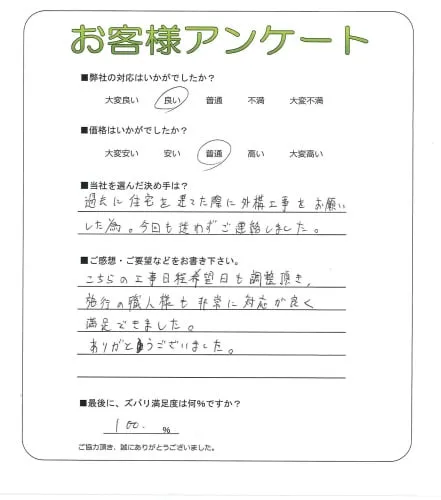 お客様アンケート
■弊社の対応はいかがでしたか?
大変良い 良い 普通 不満 大変不満
■価格はいかがでしたか?
大変安い 安い 普通 高い 大変高い
■当社を選んだ決め手は?
過去に住宅を建てた際に外構工事をお願い
した為。今回も迷わずご連絡しました。
■ご感想・ご要望などをお書き下さい。
こちらの工事日程希望日も調整頂き、
施行の職人様も非常に対応が良く
満足できました。
ありがとうございました。
■最後に、ズバリ満足度は何%ですか?
100. %
ご協力頂き、誠にありがとうございました。